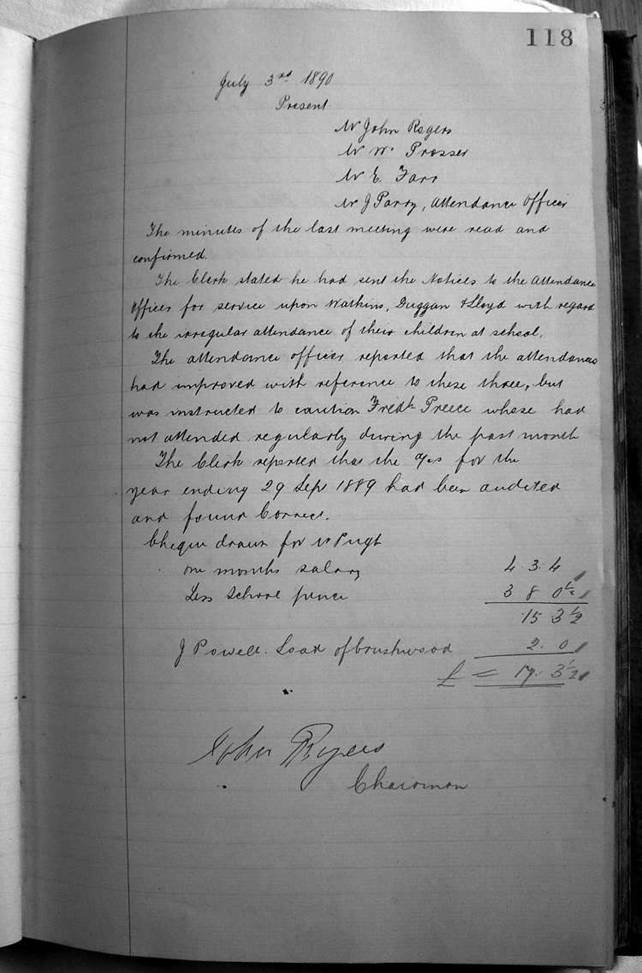 118
July 3rd 1890
Present
Mr John Rogers
Mr W. Prosser
Mr E. Farr
Mr J Parry, Attendance Officer
The minutes of the last meeting were read and
confirmed.
The Clerk stated he had sent the Notices to the Attendance
Officer for service upon Watkins, Duggan & Lloyd with regard
to the irregular attendance of their children at school.
The attendance officer reported that the attendances
had improved with reference to these three, but
was instructed to caution Fredk Preece whose had
not attended regularly during the past month
The Clerk reported that the a/cs for the
year ending 29 Sept 1889 had been audited
and found Correct.
Cheque drawn for Mr Pugh
one months salary 4 3. 4
Less School pence 3 8 0½
15 3½
J Powell. Load of brushwood 2. 0
£ = 17. 3½
John Rogers
Chairman